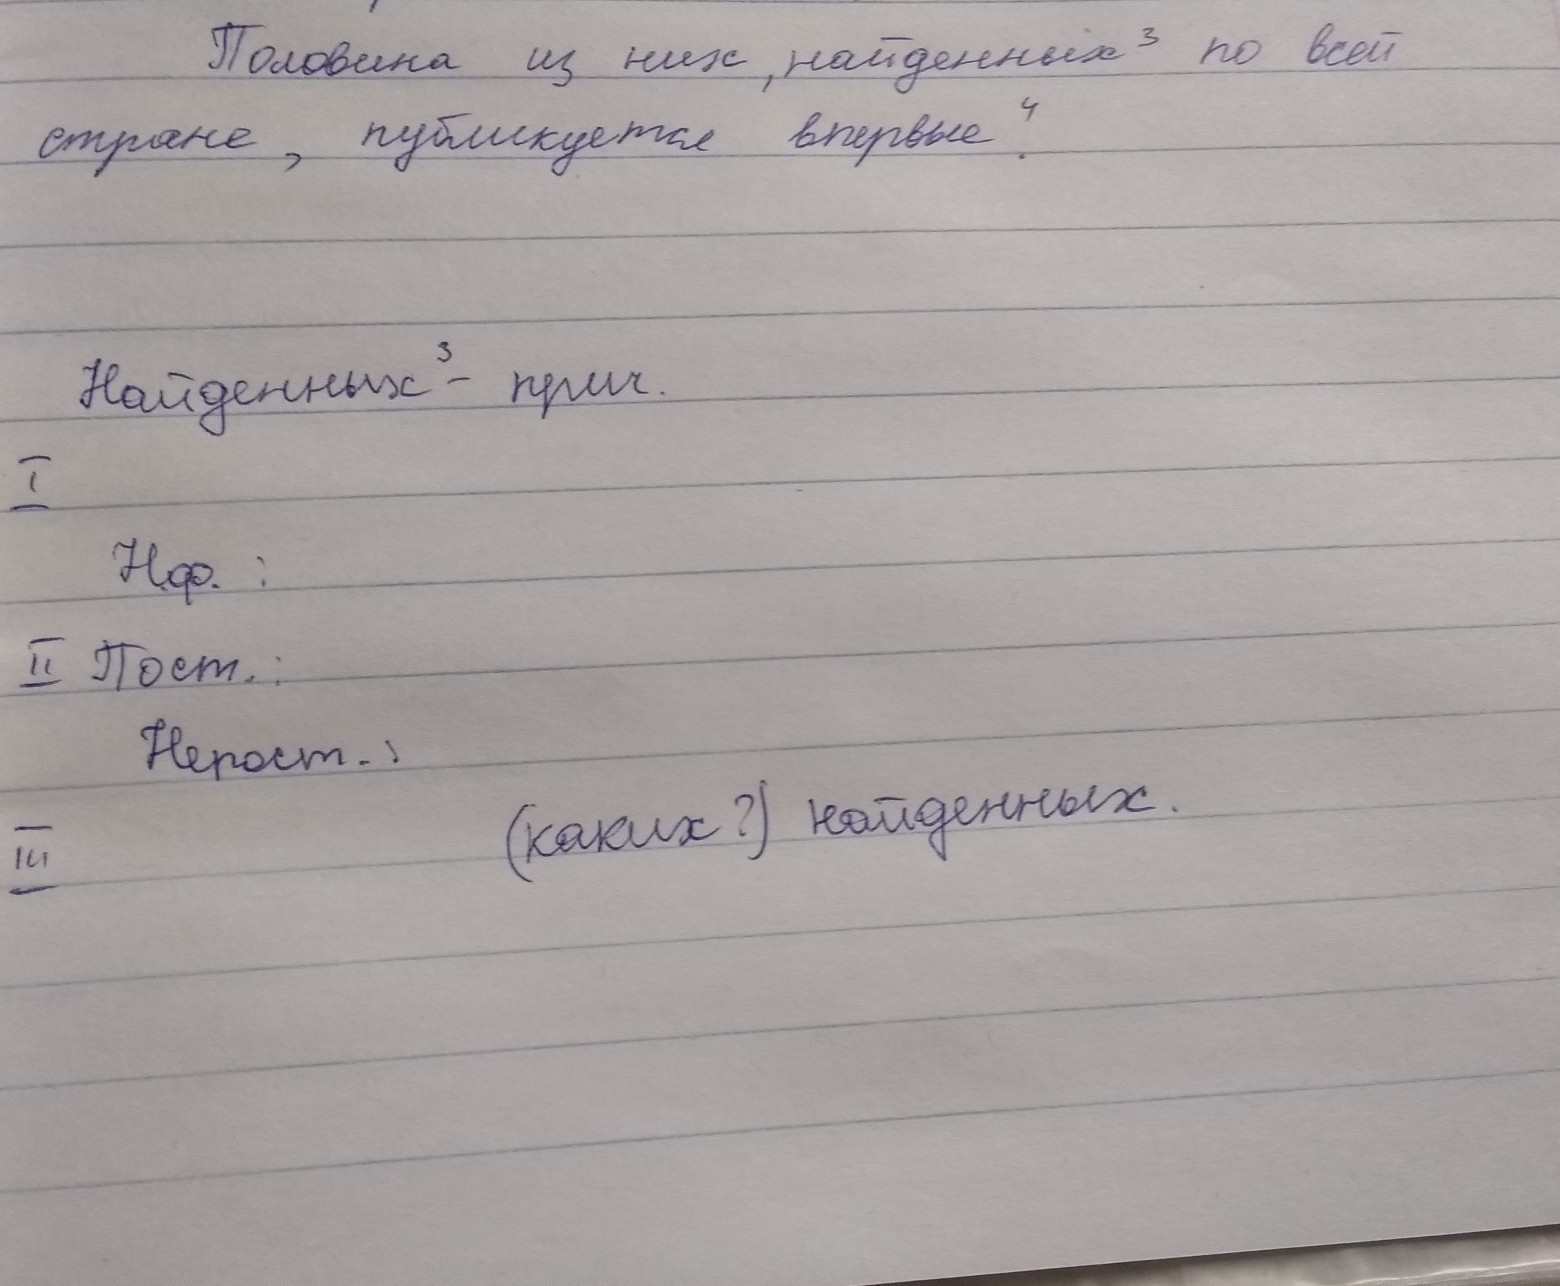 Половина из них, найденных³ по всей
стране, публикуется впервые⁴.
Найденных³ - прич.
I
Н.ф. :
II Пост. :
Непост. :
III (каких?) найденных.